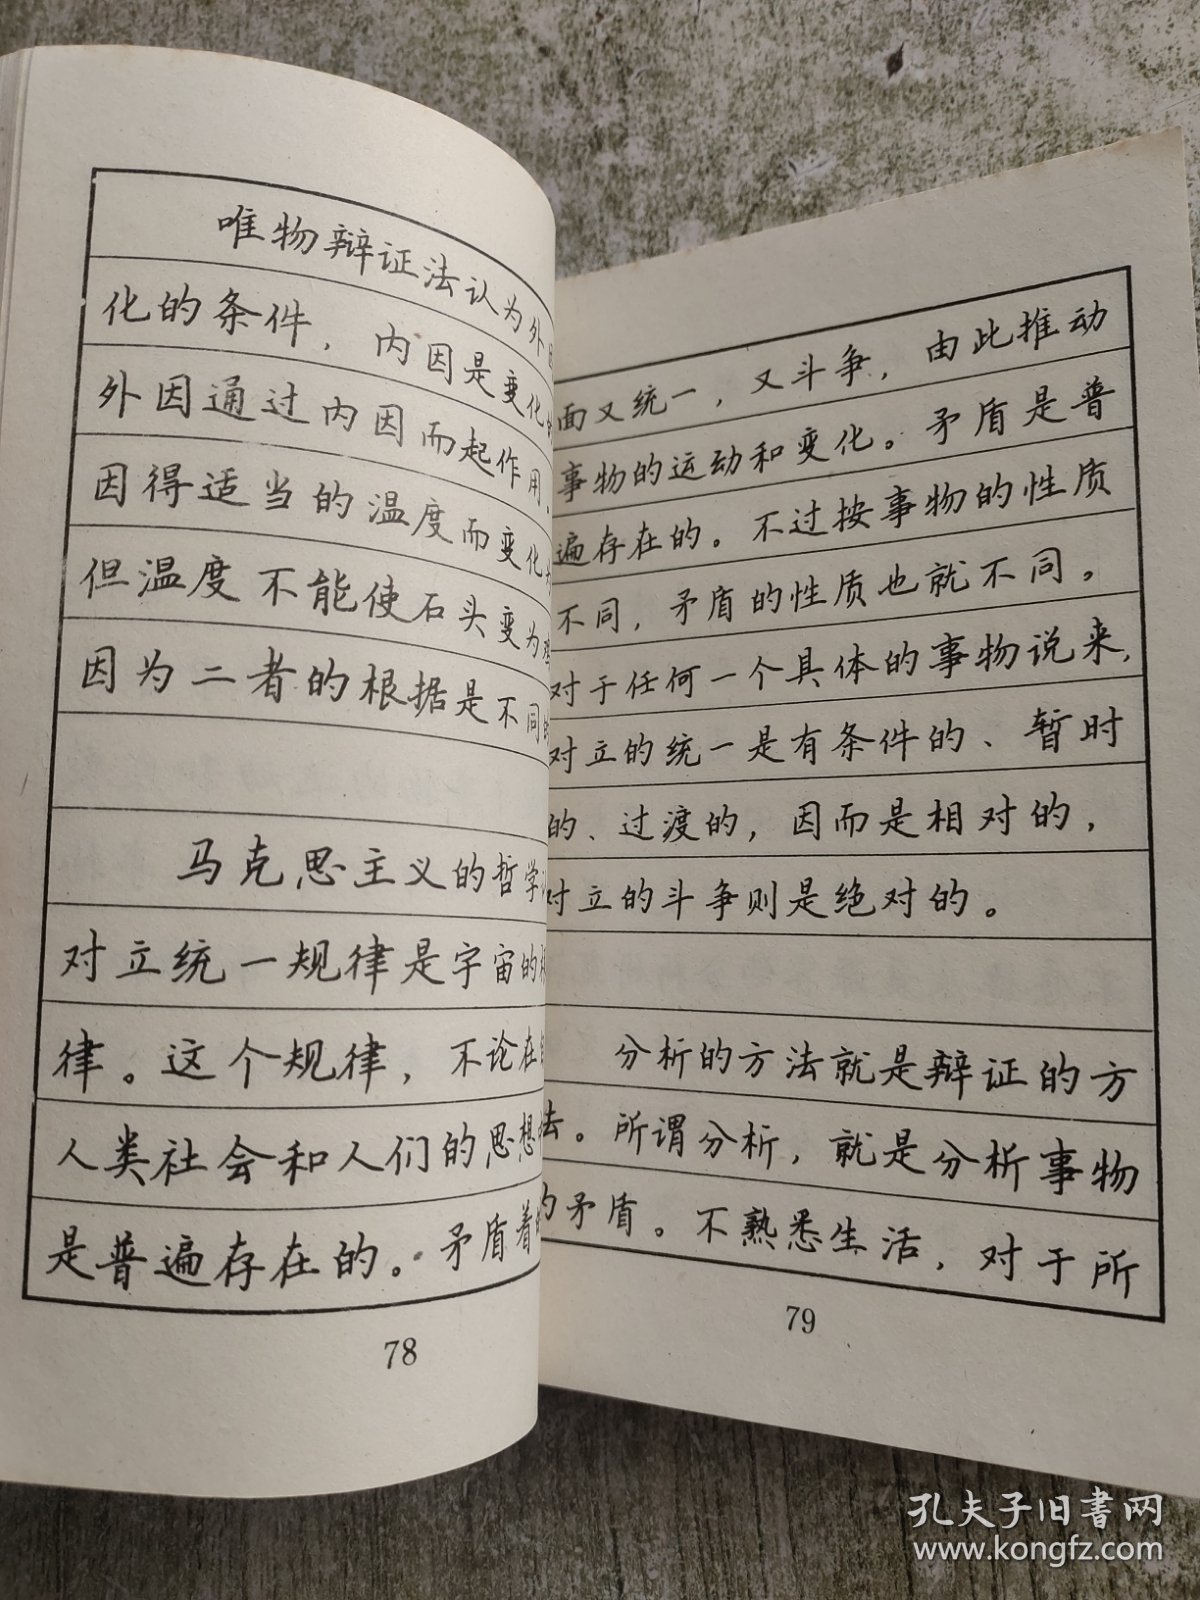 唯物辩证法认为外
化的条件，内因是变化
外因通过内因而起作用，
因得适当的温度而变化
但温度不能使石头变为
因为二者的根据是不同
马克思主义的哲学
对立统一规律是宇宙的
律。这个规律，不论在
人类社会和人们的思想
是普遍存在的。矛盾着
78
面又统一，又斗争，由此推动
事物的运动和变化。矛盾是普
遍存在的。不过按事物的性质
不同，矛盾的性质也就不同。
对于任何一个具体的事物说来，
对立的统一是有条件的、暂时
的、过渡的，因而是相对的，
对立的斗争则是绝对的。
分析的方法就是辩证的方
法。所谓分析，就是分析事物
的矛盾。不熟悉生活，对于所
79
孔夫子旧书网
www.kongfz.com